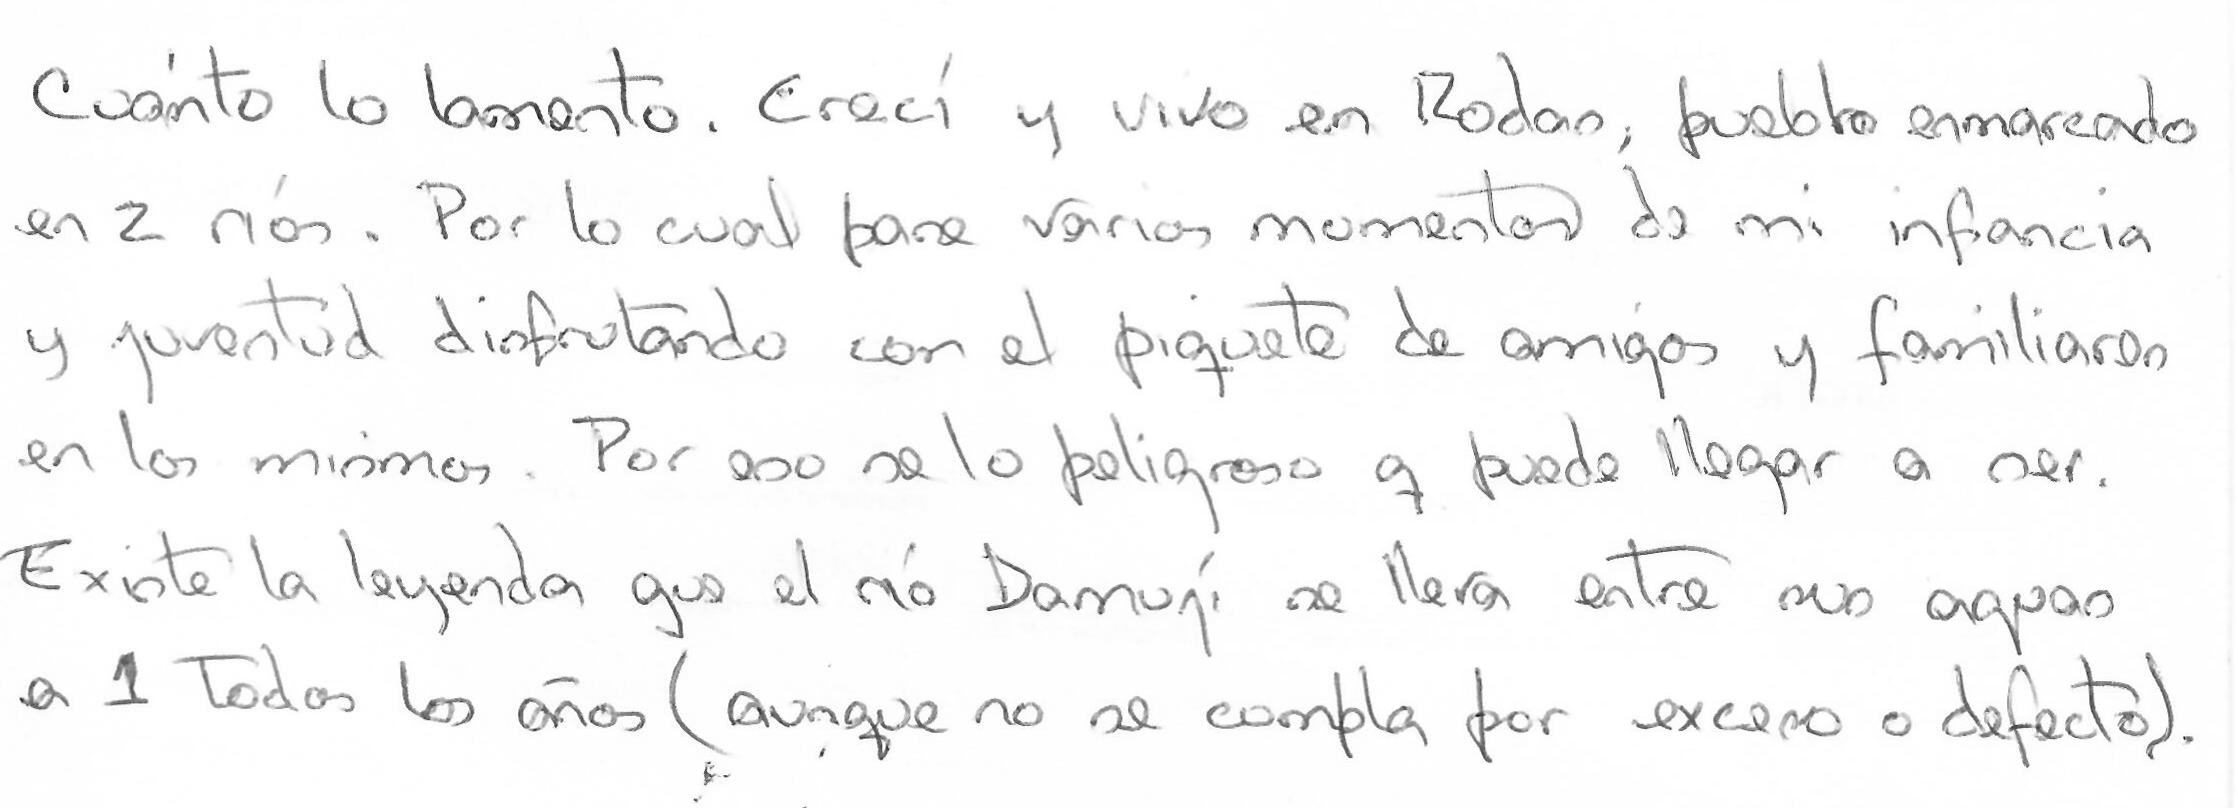 Cuánto lo lamento. Crecí y vivo en Rodas, pueblo enmarcado
en 2 ríos. Por lo cual pase varios momentos de mi infancia
y juventud disfrutando con el piquete de amigos y familiares
en los mismos. Por eso se lo peligroso q puede llegar a ser.
Existe la leyenda que el río Damují se lleva entre sus aguas
a 1 todos los años (aunque no se cumpla por exceso o defecto).